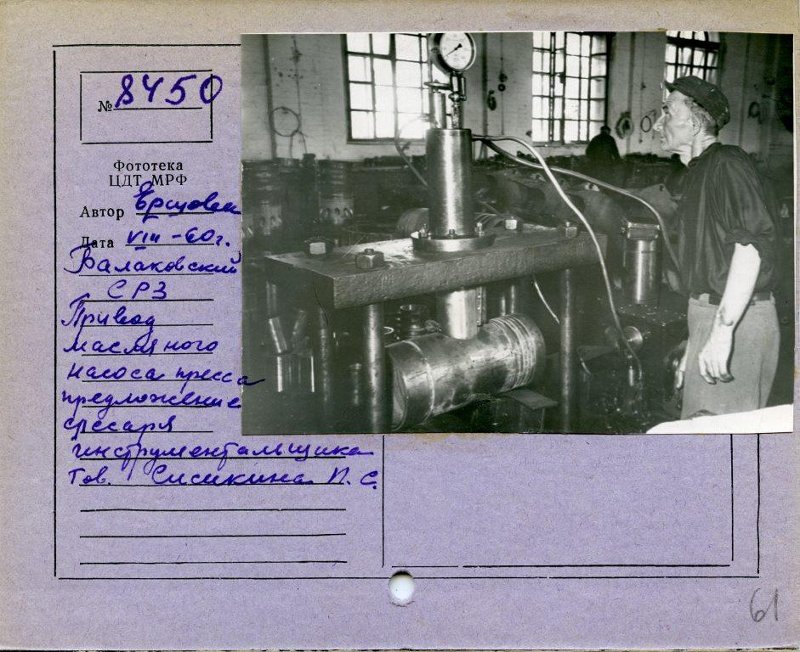 № 8450
Фототека
ЦДТ МРФ
Автор Ершова
Дата VIII-60г.
Балаковский
СРЗ
Привод
масляного
насоса пресса
предложение
слесаря
инструментальщика
тов. Сисикина П. С.
61